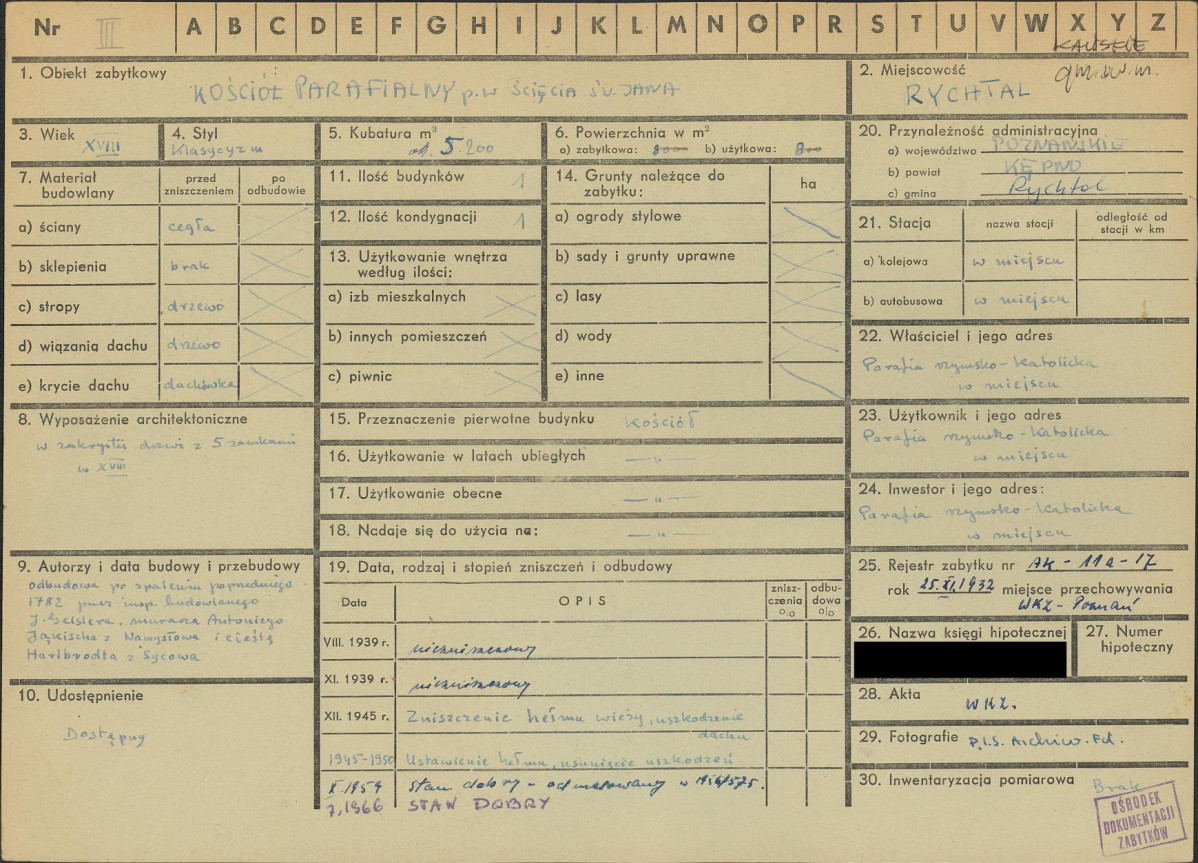 Nr III A B C D E F G H I J K L M N O P R S T U V W X Y Z
KALISKIE
1. Obiekt zabytkowy
KOŚCIÓŁ PARAFIALNY p.w ŚCIĘCIA ŚW. JANA
2. Miejscowość
RYCHTAL
3. Wiek
XVIII
4. Styl
Klasycyzm
5. Kubatura m³
ok. 5.200
6. Powierzchnia w m²
a) zabytkowa: 800 b) użytkowa: 800
20. Przynależność administracyjna
a) województwo POZNAŃSKIE
b) powiat KĘPNO
c) gmina Rychtal
7. Materiał budowlany
przed zniszczeniem
po odbudowie
a) ściany cegła
b) sklepienia brak
c) stropy drzewo
d) wiązania dachu drzewo
e) krycie dachu dachówka
11. Ilość budynków 1
12. Ilość kondygnacji 1
13. Użytkowanie wnętrza
według ilości:
a) izb mieszkalnych
b) innych pomieszczeń
c) piwnic
14. Grunty należące do
zabytku:
ha
a) ogrody stylowe
b) sady i grunty uprawne
c) lasy
d) wody
e) inne
21. Stacja
nazwa stacji
odległość od
stacji w km
a) kolejowa w miejscu
b) autobusowa w miejscu
22. Właściciel i jego adres
Parafia rzymsko-Katolicka
w miejscu
8. Wyposażenie architektoniczne
w zakrystii drzwi z 5 zamkami
w XVIII
15. Przeznaczenie pierwotne budynku Kościół
16. Użytkowanie w latach ubiegłych — „ —
17. Użytkowanie obecne — „ —
18. Nadaje się do użycia na: — „ —
23. Użytkownik i jego adres
Parafia rzymsko-Katolicka
w miejscu
24. Inwestor i jego adres:
Parafia rzymsko-Katolicka
w miejscu
9. Autorzy i data budowy i przebudowy
odbudowa po spaleniu poprzedniego
1782 przez insp. budowlanego
J. Geislera, murarza Antoniego
Jäkischa z Namysłowa i cieślę
Hartbrodta z Sycowa
10. Udostępnienie
Dostępny
19. Data, rodzaj i stopień zniszczeń i odbudowy
Data
OPIS
znisz-
czenia
o/o
odbu-
dowa
o/o
VIII. 1939 r. niezniszczony
XI. 1939 r. niezniszczony
XII. 1945 r. Zniszczenie hełmu wieży, uszkodzenie
dachu
1945-1950 Ustawienie hełmu, usunięcie uszkodzeń
X 1959 stan dobry - odmalowany w 1956/57 r.
7, 1966 STAN DOBRY
25. Rejestr zabytku nr AK - 11a - 17
rok 25.XI.1932 miejsce przechowywania
WKZ - Poznań
26. Nazwa księgi hipotecznej
27. Numer
hipoteczny
28. Akta WKZ.
29. Fotografie P.I.S. Archiw. Fot.
30. Inwentaryzacja pomiarowa
Brak
OŚRODEK
DOKUMENTACJI
ZABYTKÓW